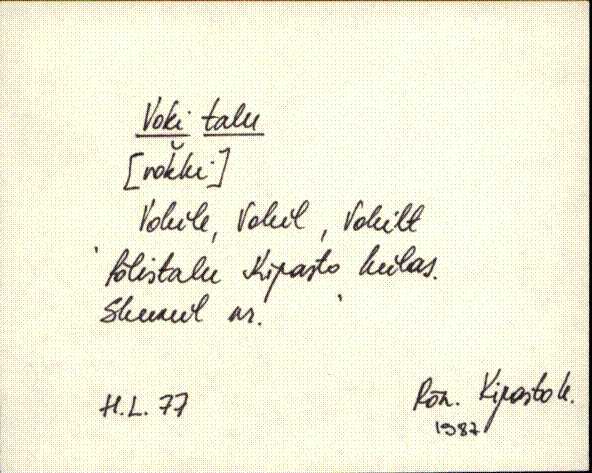 Voki talu
[vokki]
Vokile, Vokil, Vokilt
Põlistalu Kipasto külas.
nr.
H.L. 77
Rõn. Kipasto k.
1987